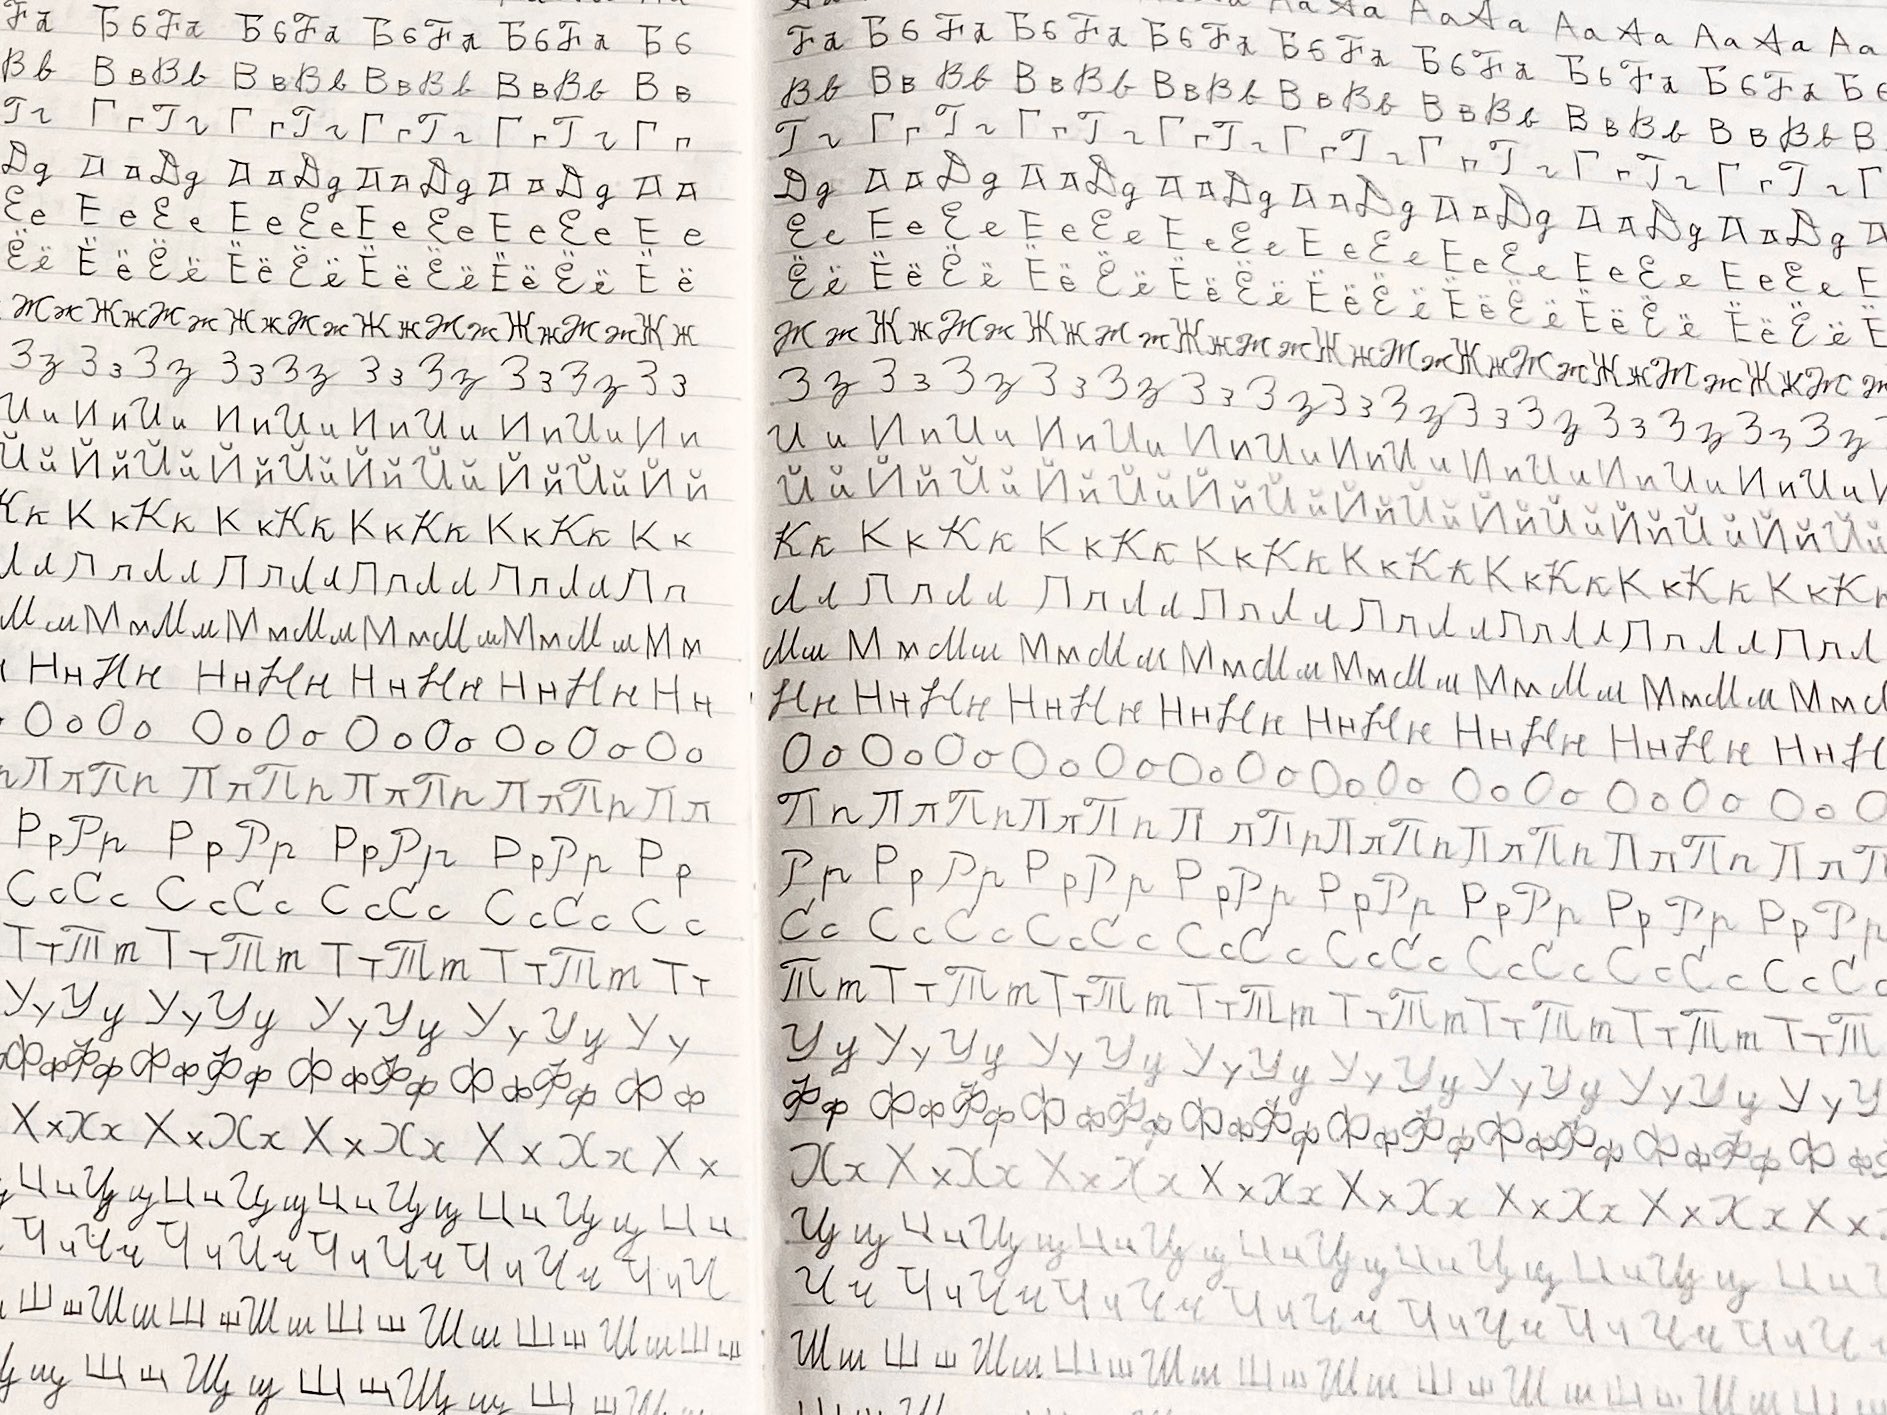 Бб Бб Бб Бб Бб Бб Бб Бб Бб Бб
Вв Вв Вв Вв Вв Вв Вв Вв Вв Вв
Гг Гг Гг Гг Гг Гг Гг Гг Гг Гг
Дд Дд Дд Дд Дд Дд Дд Дд Дд Дд
Ее Ее Ее Ее Ее Ее Ее Ее Ее Ее
Ёё Ёё Ёё Ёё Ёё Ёё Ёё Ёё Ёё Ёё
Жж Жж Жж Жж Жж Жж Жж Жж Жж Жж
Зз Зз Зз Зз Зз Зз Зз Зз Зз Зз
Ии Ии Ии Ии Ии Ии Ии Ии Ии Ии
Йй Йй Йй Йй Йй Йй Йй Йй Йй Йй
Кк Кк Кк Кк Кк Кк Кк Кк Кк Кк
Лл Лл Лл Лл Лл Лл Лл Лл Лл Лл
Мм Мм Мм Мм Мм Мм Мм Мм Мм Мм
Нн Нн Нн Нн Нн Нн Нн Нн Нн
Оо Оо Оо Оо Оо Оо Оо Оо Оо
Пп Пп Пп Пп Пп Пп Пп Пп Пп
Рр Рр Рр Рр Рр Рр Рр Рр Рр
Сс Сс Сс Сс Сс Сс Сс Сс Сс
Тт Тт Тт Тт Тт Тт Тт Тт Тт
Уу Уу Уу Уу Уу Уу Уу Уу Уу
Фф Фф Фф Фф Фф Фф Фф Фф Фф
Хх Хх Хх Хх Хх Хх Хх Хх Хх
Цц Цц Цц Цц Цц Цц Цц Цц Цц
Чч Чч Чч Чч Чч Чч Чч Чч Чч
Шш Шш Шш Шш Шш Шш Шш Шш Шш
Щщ Щщ Щщ Щщ Щщ Щщ
Аа Аа Аа Аа Аа Аа Аа
Бб Бб Бб Бб Бб Бб Бб Бб Бб Бб Бб Бб Бб Бб Бб Бб
Вв Вв Вв Вв Вв Вв Вв Вв Вв Вв Вв Вв Вв Вв Вв В
Гг Гг Гг Гг Гг Гг Гг Гг Гг Гг Гг Гг Гг Гг Гг Г
Дд Дд Дд Дд Дд Дд Дд Дд Дд Дд Дд Дд Дд Дд Дд Д
Ее Ее Ее Ее Ее Ее Ее Ее Ее Ее Ее Ее Ее Ее Ее Е
Ёё Ёё Ёё Ёё Ёё Ёё Ёё Ёё Ёё Ёё Ёё Ёё Ёё Ёё Ёё Ё
Жж Жж Жж Жж Жж Жж Жж Жж Жж Жж Жж Жж Жж Жж Жж
Зз Зз Зз Зз Зз Зз Зз Зз Зз Зз Зз Зз Зз Зз Зз
Ии Ии Ии Ии Ии Ии Ии Ии Ии Ии Ии Ии Ии Ии Ии
Йй Йй Йй Йй Йй Йй Йй Йй Йй Йй Йй Йй Йй Йй Йй
Кк Кк Кк Кк Кк Кк Кк Кк Кк Кк Кк Кк Кк Кк Кк
Лл Лл Лл Лл Лл Лл Лл Лл Лл Лл Лл Лл Лл Лл Лл
Мм Мм Мм Мм Мм Мм Мм Мм Мм Мм Мм Мм Мм Мм
Нн Нн Нн Нн Нн Нн Нн Нн Нн Нн Нн Нн Нн Нн Н
Оо Оо Оо Оо Оо Оо Оо Оо Оо Оо Оо Оо Оо Оо О
Пп Пп Пп Пп Пп Пп Пп Пп Пп Пп Пп Пп Пп Пп П
Рр Рр Рр Рр Рр Рр Рр Рр Рр Рр Рр Рр Рр Рр Рр
Сс Сс Сс Сс Сс Сс Сс Сс Сс Сс Сс Сс Сс Сс Сс
Тт Тт Тт Тт Тт Тт Тт Тт Тт Тт Тт Тт Тт Тт Т
Уу Уу Уу Уу Уу Уу Уу Уу Уу Уу Уу Уу Уу Уу У
Фф Фф Фф Фф Фф Фф Фф Фф Фф Фф Фф Фф Фф Фф
Хх Хх Хх Хх Хх Хх Хх Хх Хх Хх Хх Хх Хх Хх
Цц Цц Цц Цц Цц Цц Цц Цц Цц Цц Цц Цц Цц Цц
Чч Чч Чч Чч Чч Чч Чч Чч Чч Чч Чч Чч Чч Чч
Шш Шш Шш Шш Шш Шш Шш Шш Шш Шш Шш Шш